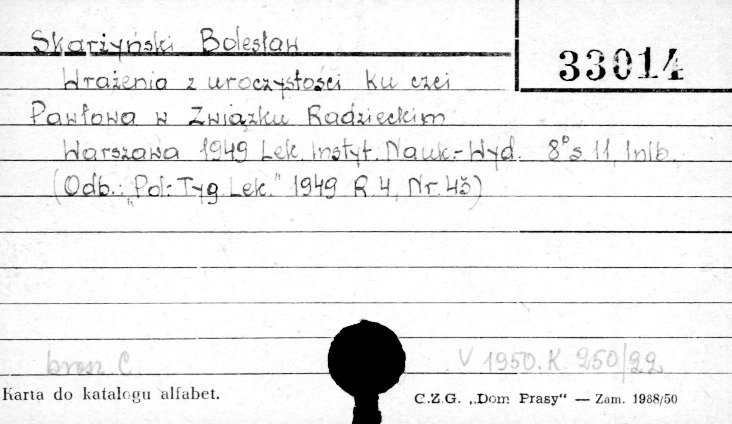 Skarżyński Bolesław
33014
Wrażenia z uroczystości ku czci
Pawłowa w Związku Radzieckim
Warszawa 1949 Lek. Instyt. Nauk.-Wyd. 8° s. 11, 1nlb.
(Odb.: "Pol. Tyg. Lek." 1949 R. 4, Nr. 43)
brosz C.
V 1950. K. 250/22
Karta do katalogu alfabet.
C.Z.G. „Dom Prasy" — Zam. 1988/50